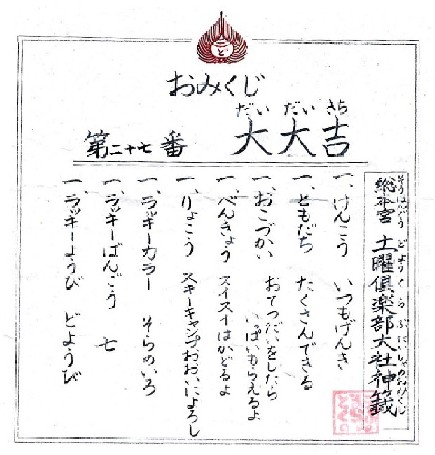 おみくじ
だいだいきち
大大吉
第二十七番
総本宮 土曜倶楽部大社神籤
一、けんこう いつもげんき
一、ともだち たくさんできる
一、おこづかい おてつだいをしたら
いっぱいもらえるよ
一、べんきょう スイスイはかどるよ
一、りょこう スキーキャンプおおいによろし
一、ラッキーカラー そらのいろ
一、ラッキーばんごう 七
一、ラッキーようび どようび